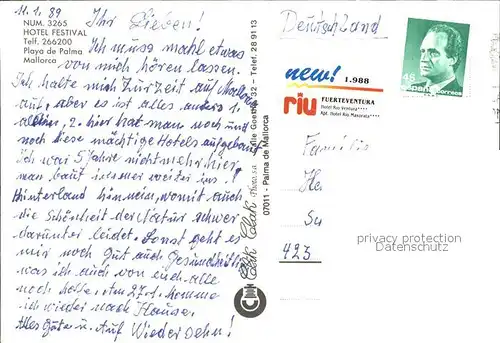 11.1.89
NUM. 3265
HOTEL FESTIVAL
Telf. 266200
Playa de Palma
Mallorca
Ihr Lieben!
Ich muss mahl etwas
von mich hören lassen.
Ich halte mich zur Zeit auf Mallorca
auf, aber es ist alles anders 1.
allein, 2. hier hat man noch und
noch diese mächtige Hotels aufgebaut
Ich war 5 Jahre nicht mehr hier,
man baut immer weiter ins
Hinterland hinnein, womit auch
die Schönheit der Natur schwer
darunter leidet. Sonst geht es
mir noch gut auch Gesundheitl.
was ich auch von Euch alle
noch hoffe. Am 27.1. komme
ich wieder nach Hause.
Alles Gute u. Auf Wiedersehn!
Clik Clak
Calle Goethe, 32 - Telefono 28 91 13
07011 - Palma de Mallorca
Deutschland
new! 1.988
riu FUERTEVENTURA
Hotel Riu Ventura
Apt. Hotel Riu Maxorata
48
España correos
Familie
He
Su
423
privacy protection
Datenschutz